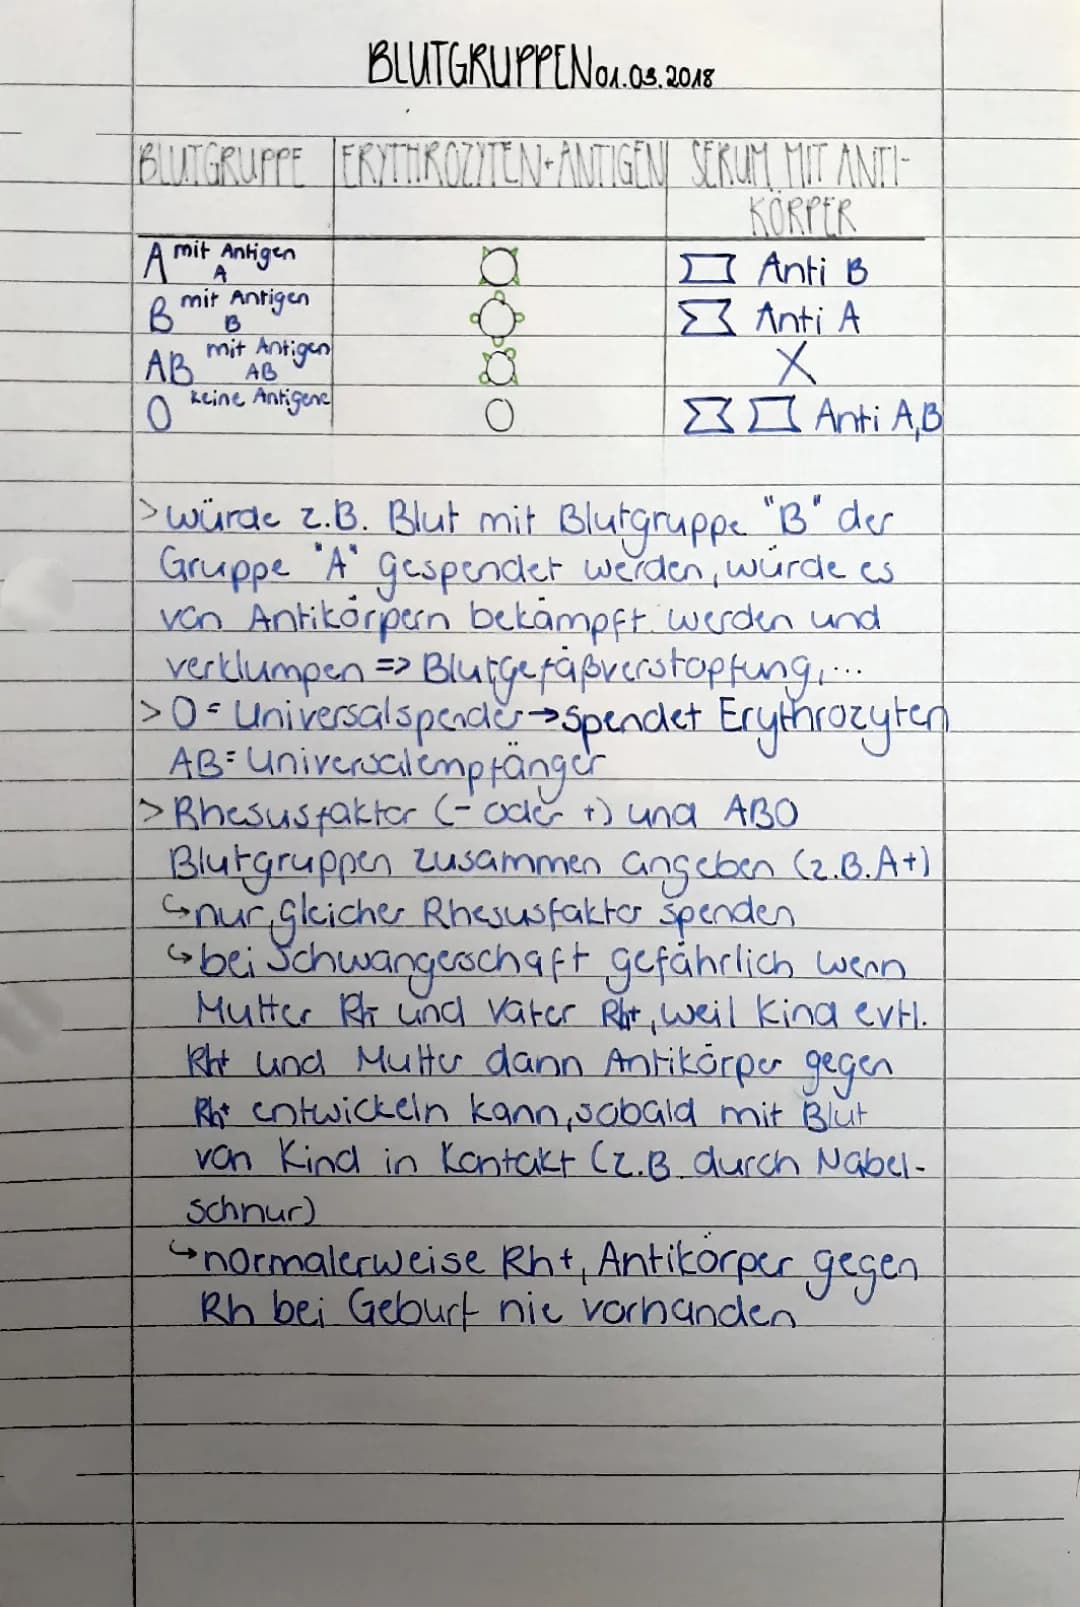 BLUTGRUPPEN 01.03.2018
BLUTGRUPPE ERYTHROZYTEN+ANTIGEN SERUM MIT ANTI-
KÖRPER
A mit Antigen A Anti B
B mit Antigen B Anti A
AB mit Antigen AB X
0 keine Antigene Anti A,B
>würde z.B. Blut mit Blutgruppe "B" der
Gruppe "A" gespendet werden, würde es
von Antikörpern bekämpft werden und
verklumpen => Blutgefäßverstopfung,...
>0 = Universalspender→spendet Erythrozyten
AB= Universalempfänger
>Rhesusfaktor (- oder +) und AB0
Blutgruppen zusammen angeben (z.B. A+)
↳nur gleicher Rhesusfaktor spenden
↳bei Schwangerschaft gefährlich wenn
Mutter Rh- und Vater Rh+, weil Kind evtl.
Rh+ und Mutter dann Antikörper gegen
Rh+ entwickeln kann, sobald mit Blut
von Kind in Kontakt (z.B. durch Nabel-
schnur)
↳normalerweise Rh+, Antikörper gegen
Rh bei Geburt nie vorhanden